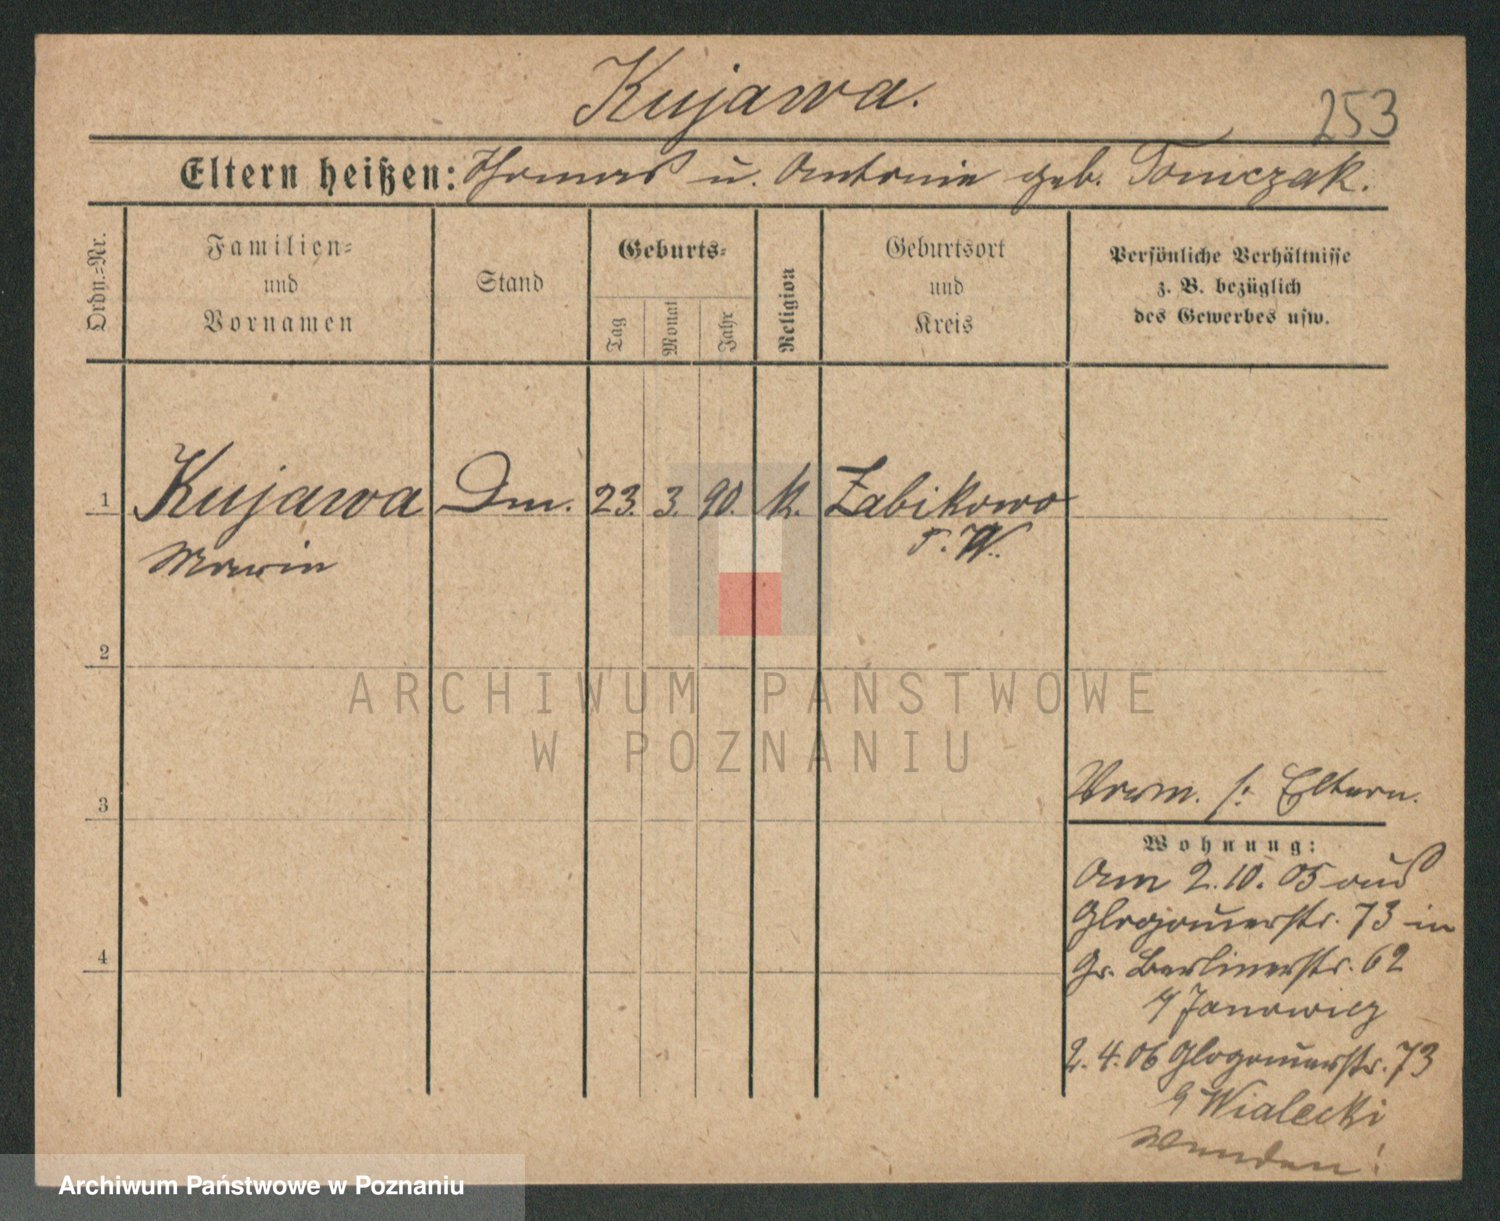 Kujawa.
253
Eltern heißen: Thomas u. Antonie geb. Tomczak.
Ordn.=Nr.
Familien=
und
Vornamen
Stand
Geburts=
Tag
Monat
Jahr
Religion
Geburtsort
und
Kreis
Persönliche Verhältnisse
z. B. bezüglich
des Gewerbes usw.
1 Kujawa Dm. 23. 3. 90. k. Zabikowo
P. W.
2
3
4
ARCHIWUM PAŃSTWOWE
W POZNANIU
Vorm. s: Eltern.
Wohnung:
Am 2.10.05 aus
Glogauerstr. 73 in
Gr. Berlinerstr. 62
Janowicz
2.4.06 Glogauerstr. 73
Wialecki
Wenden!
Archiwum Państwowe w Poznaniu